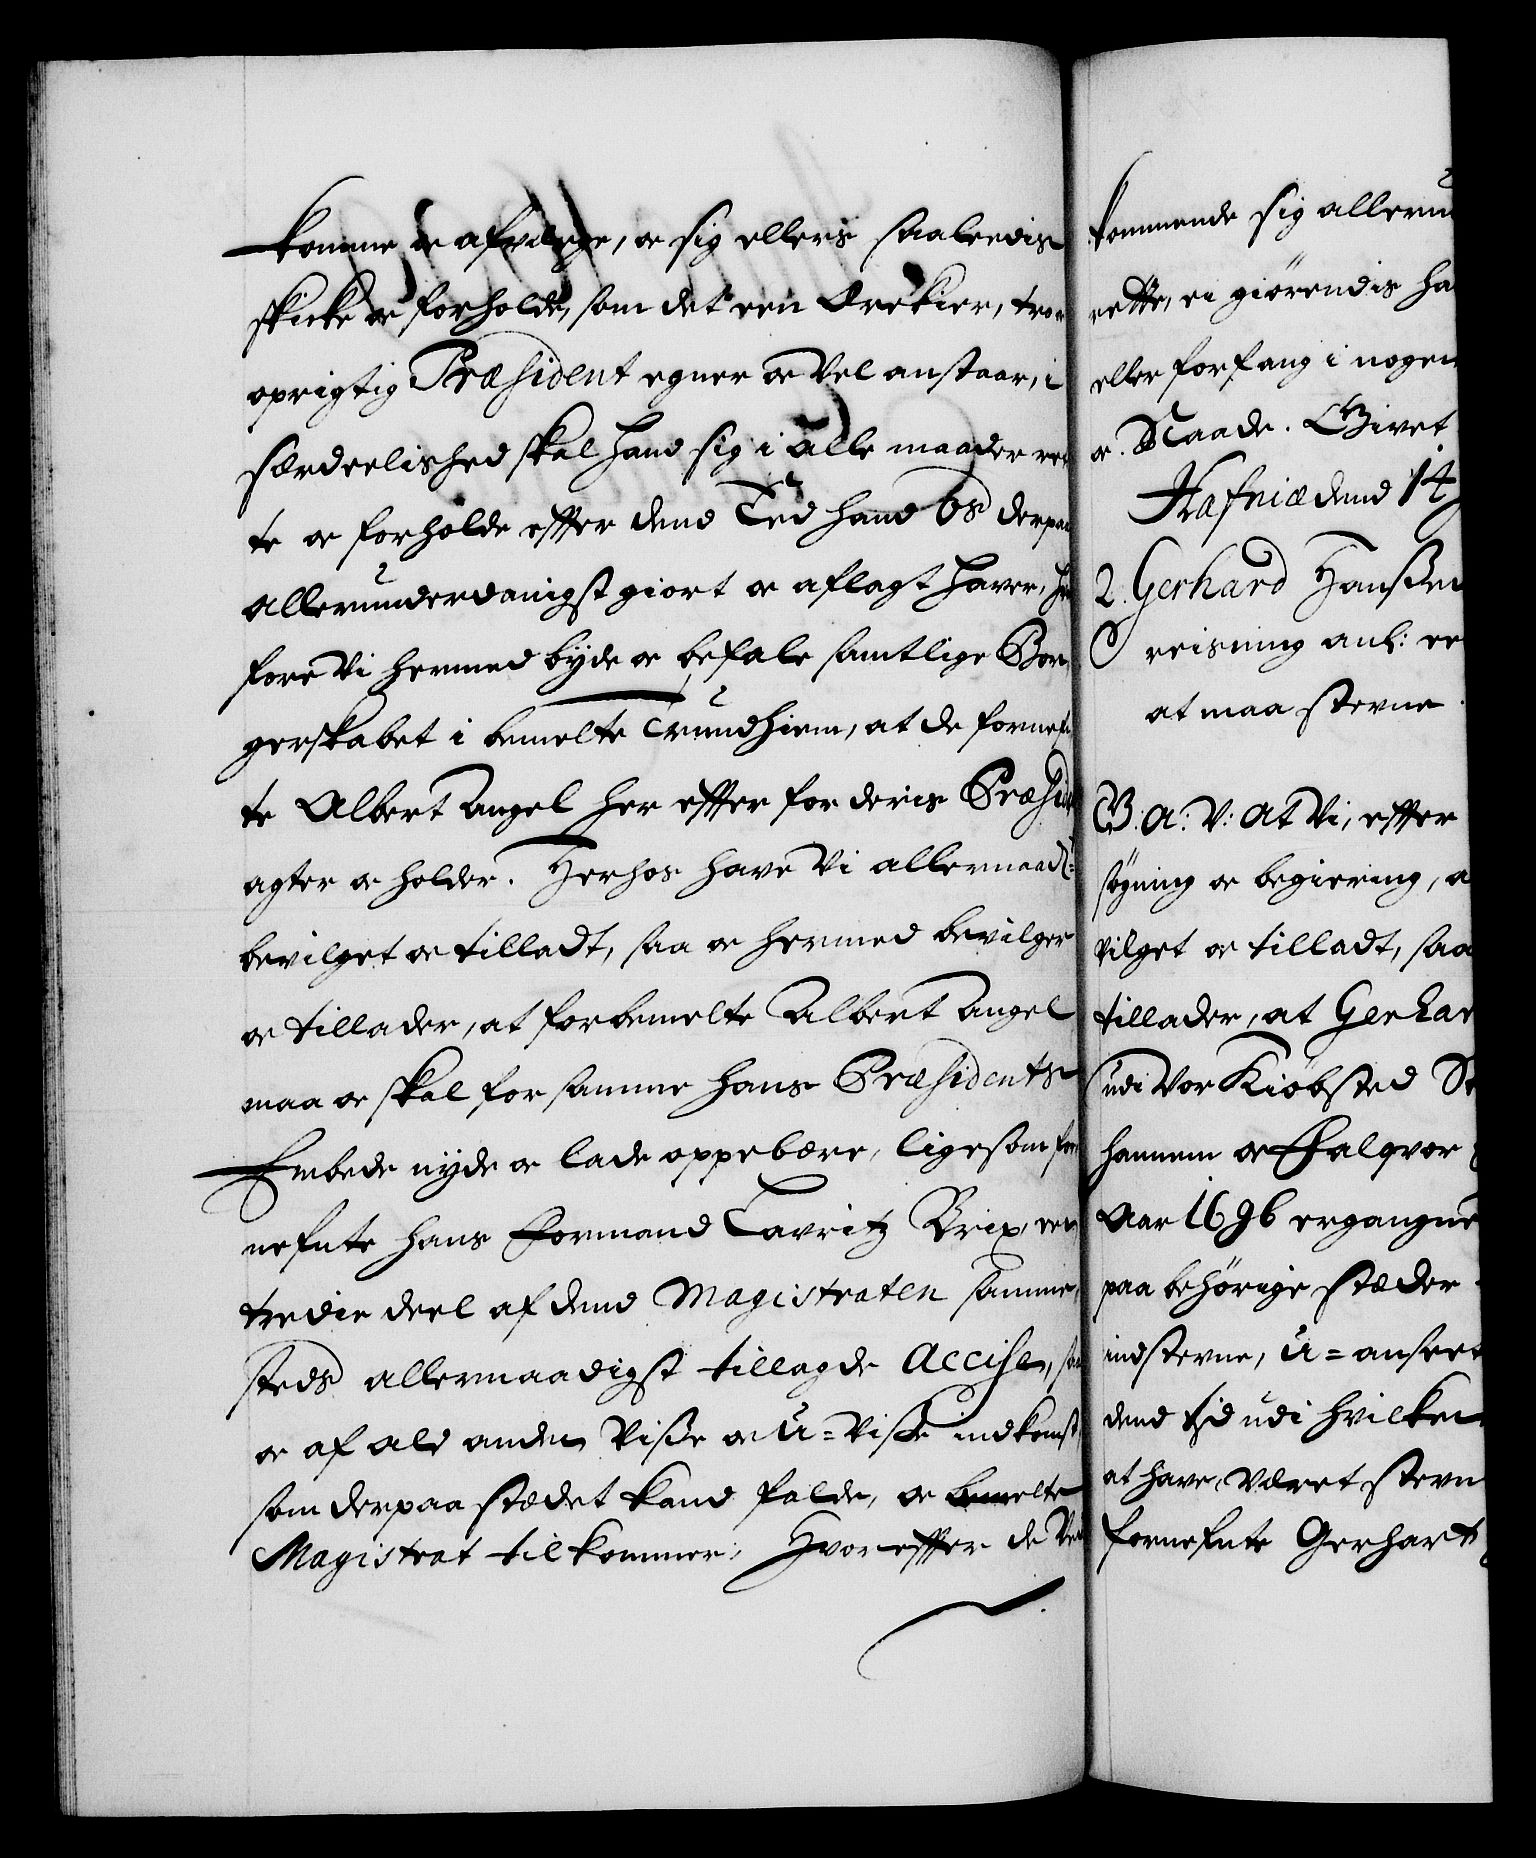 komme oc afværge, oc sig ellers saaleedis
skicke oc forholde, som det een Ærekier, troe
oprigtig Præsident egner oc vel anstaar, i
særdeelished skal hand sig i alle maader ret
te oc forholde effter dend Eed hand os derpaa
allerunderdanigst giort oc aflagt haver, her
fore Vi hermed byde oc befale samtlige Bor
gerskabet i bemelte Trundhiem, at de fornefn
te Albert Angel her effter for deris Præsident
agter oc holder. Herhos have Vi allernaadt:
bevilget oc tilladt, saa oc hermed bevilger
oc tillader, at forbemelte Albert Angel
maa oc skal for samme hans Præsidents
Embede nyde oc lade oppebære, ligesom for
nefnte hans Formand Lavritz Brix, een
tredie deel af dend Magistraten samme
steds allernaadigst tillagde Accise, saa
oc af ald anden Visse oc U=visse indkomst,
som derpaa stædet kand falde, oc bemelte
Magistrat tilkommer, Hvoreffter de Ved
kommende sig alleru
rette, ei giörendis ha
eller forfang i nogen
oc Naade. Givet
Hafniæ dend 14
2. Gerhard Hanssen
reisning anl: ee
at maa stevne
G: A: V: At Vi, effter
søgning oc begiering, a
vilget oc tilladt, saa
tillader, at Gerhar
udi Vor Kiöbsted St
hannem oc Falqvor
Aar 1696 ergangne
paa behörige stæder
indstevne, U=anseet
dend tid udi hvilken
at have været stevn
fornefnte Gerhart